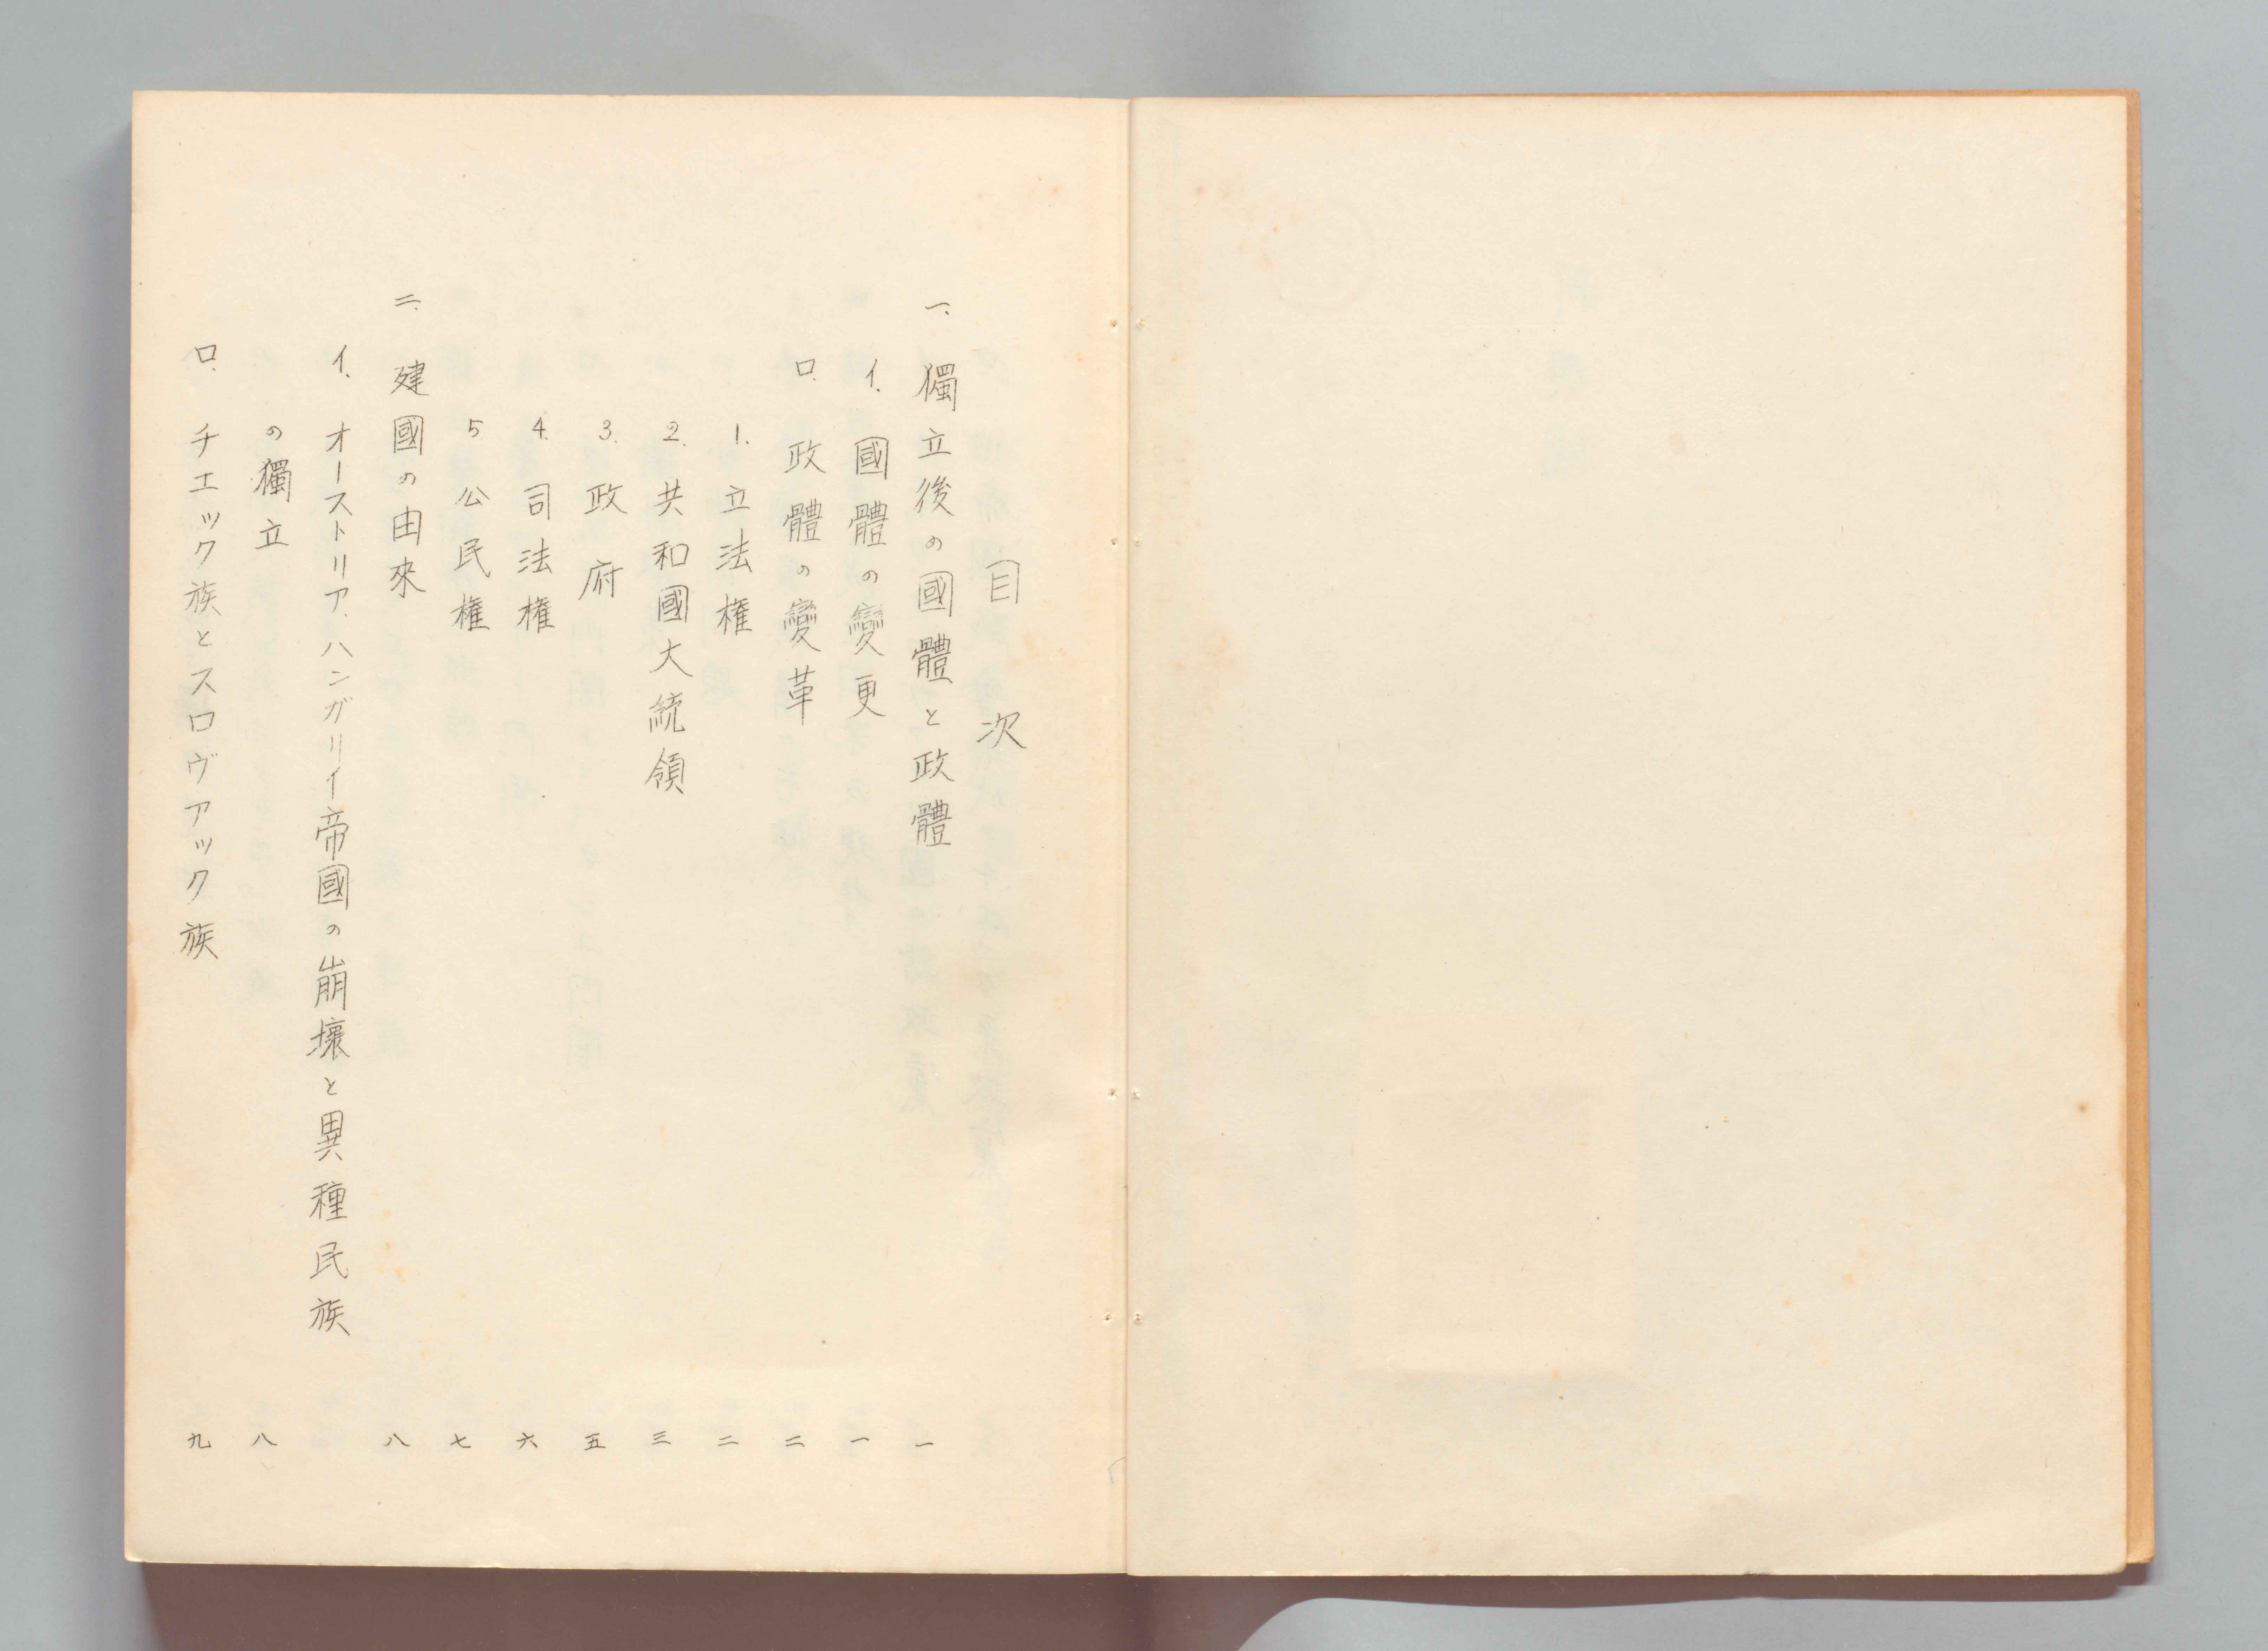 目次
一、獨立後の國體と政體 一
イ、國體の變更 一
ロ、政體の變革 二
1. 立法権 二
2. 共和國大統領 三
3. 政府 五
4. 司法権 六
5 公民権 七
二、建國の由來 八
イ、オーストリア、ハンガリイ帝國の崩壞と異種民族
の獨立 八
ロ、チエック族とスロヴアック族 九